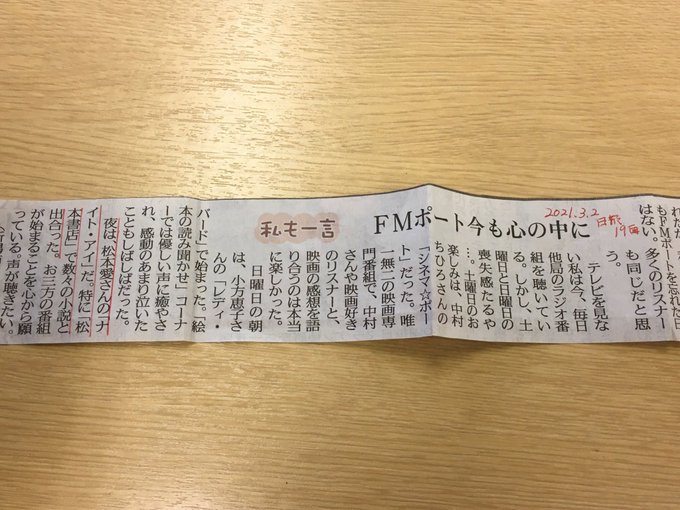 2021.3.2
日報
19面
FMポート今も心の中に
私も一言
もFMポートを忘れた日
はない。多くのリスナー
も同じだと思
う。
テレビを見な
い私は今、毎日
他局のラジオ番
組を聴いてい
る。しかし、土
曜日と日曜日の
喪失感たるや
…。土曜日のお
楽しみは、中村
ちひろさんの
「シネマ☆ポー
ト」だった。唯
一無二の映画専
門番組で、中村
さんや映画好き
のリスナーと、
映画の感想を語
り合うのは本当
に楽しかった。
日曜日の朝
は、小方恵子さ
んの「レディ・
バード」で始まった。「絵
本の読み聞かせ」コーナ
ーでは優しい声に癒やさ
れ、感動のあまり泣いた
こともしばしばだった。
夜は、松本愛さんの「ナ
イト・アイ」だ。特に「松
本書店」で数々の小説と
出合った。お三方の番組
が始まることを心から願
っている。声が聴きたい。